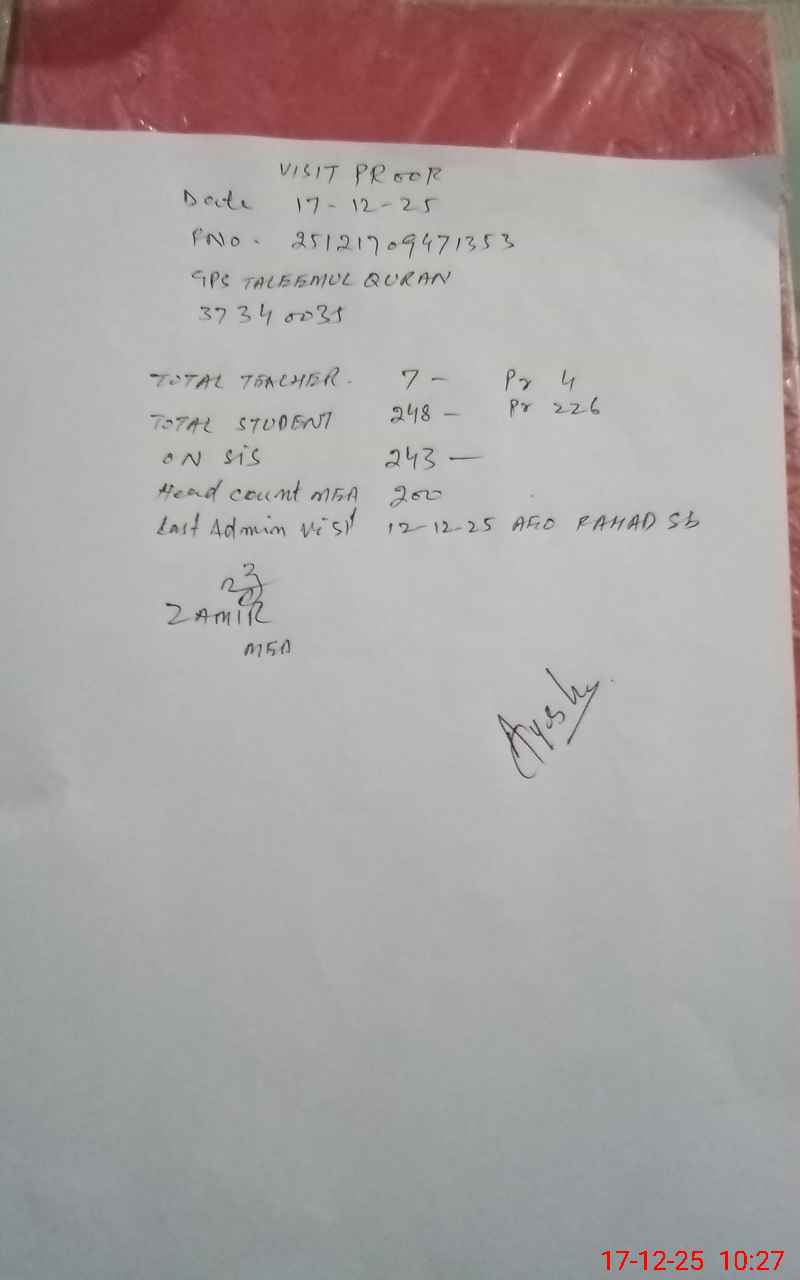 VISIT PROOF
Date 17-12-25
PNO. 25121709471353
GPS TALEEMUL QURAN
37340035
TOTAL TEACHER. 7 - Pr 4
TOTAL STUDENT 248 - Pr 226
ON SIS 243 -
Head count MEA 200
Last Admin Visit 12-12-25 AEO FAHAD Sb
ZAMIR
MEA
17-12-25 10:27